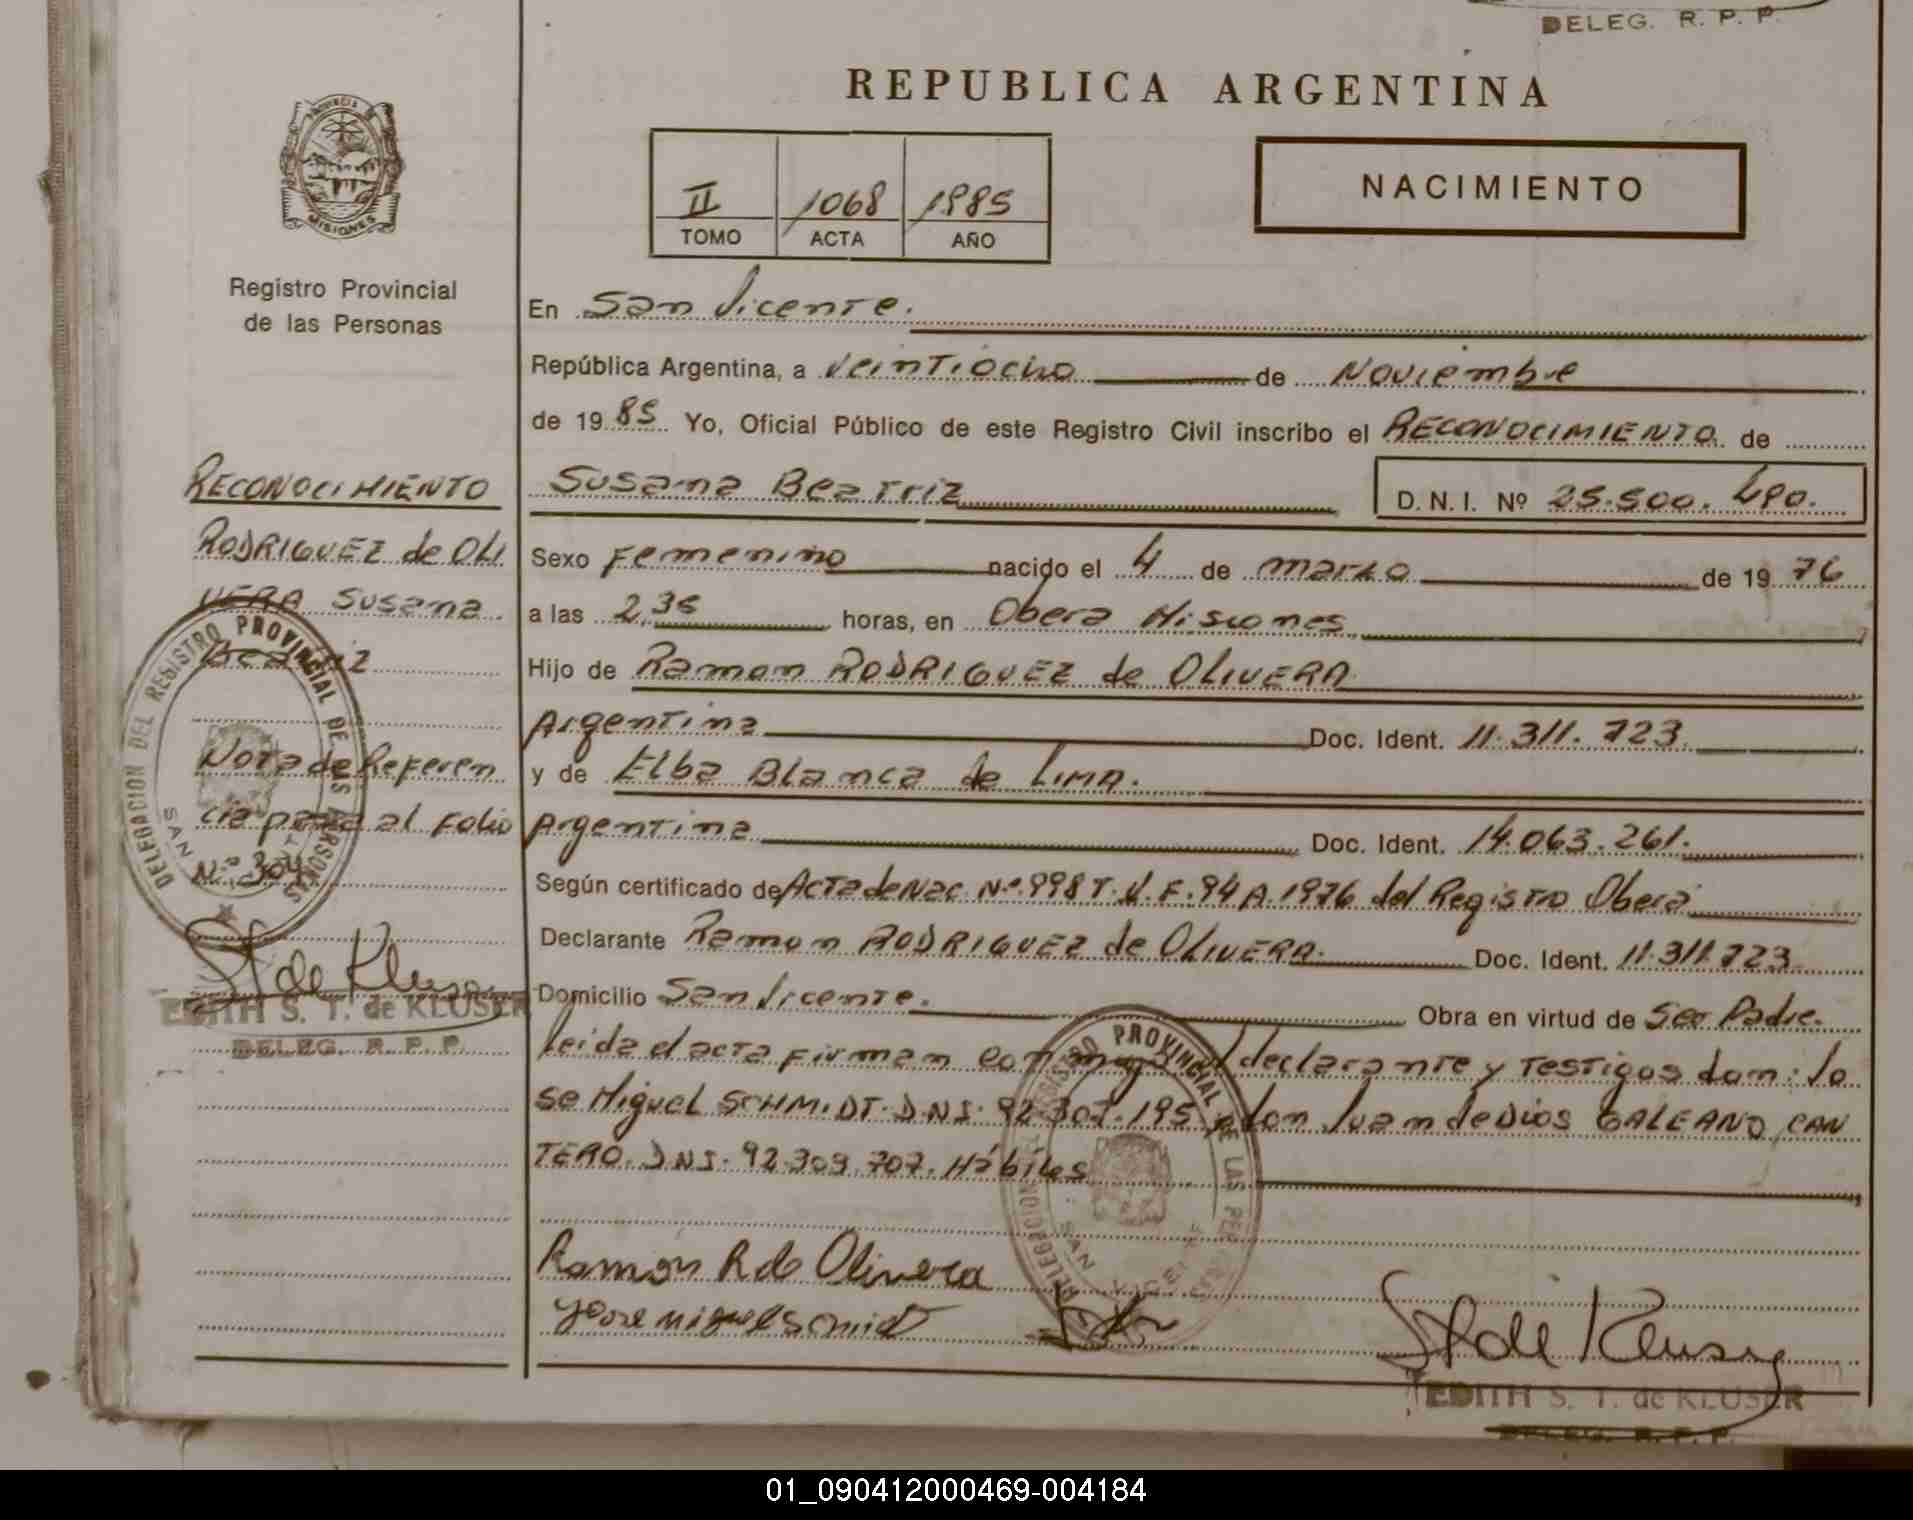 DELEG. R. P. P.
REPUBLICA ARGENTINA
PROVINCIA DE
MISIONES
II 1068 1985
TOMO ACTA AÑO
NACIMIENTO
Registro Provincial
de las Personas
En San Vicente.
República Argentina, a veintiocho de Noviembre
de 1985 Yo, Oficial Público de este Registro Civil inscribo el RECONOCIMIENTO de
Susana Beatriz D. N. I. Nº 25.500.490.
Sexo Femenino nacido el 4 de marzo de 1976
a las 2,35 horas, en Obera Misiones
Hijo de Ramon RODRIGUEZ de OLIVERA
Argentina Doc. Ident. 11.311.723
y de Elba Blanca de LIMA.
Argentina Doc. Ident. 14.063.261.
Según certificado de Acta de Nac. Nº 998 T. V. F. 94 A. 1976 del Registro Oberá
Declarante Ramon RODRIGUEZ de OLIVERA. Doc. Ident. 11.311.723
Domicilio San Vicente. Obra en virtud de Ser Padre.
leida el acta firman conmigo el declarante y testigos dom: Jo
se Miguel SCHMIDT. D.N.I. 92.307.195 y don Juan de Dios GALEANO CAN
TERO. D.N.I. 92.309.707. Hábiles
Ramon R de Olivera
Jose miguel Smid
St de Kluser
EDITH S. T. de KLUSER
DELEG. R. P. P.
RECONOCIMIENTO
RODRIGUEZ de OLI
VERA Susana
Beatriz
Nota de Referen
cia pasa al Folio
Nº 304
St de Kluser
EDITH S. T. de KLUSER
DELEG. R. P. P.
DELEGACION DEL REGISTRO PROVINCIAL DE LAS PERSONAS
SAN VICENTE
DELEGACION DEL REGISTRO PROVINCIAL DE LAS PERSONAS
SAN VICENTE
01_090412000469-004184